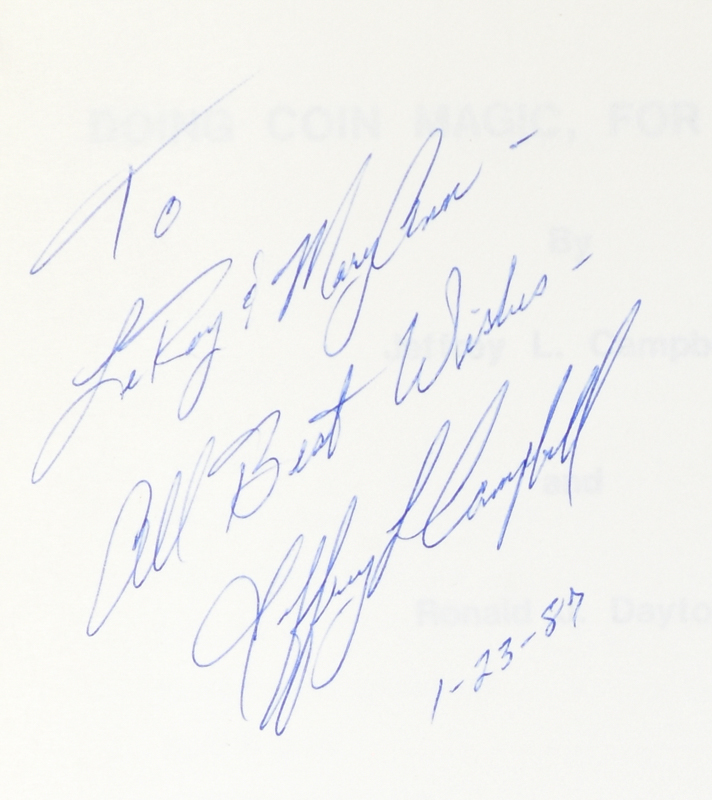 To
LeRoy & Mary Ann -
All Best Wishes -
Jeffrey L Campbell
1-23-87
DOING COIN MAGIC, FOR
By
Jeffrey L. Campb
and
Ronald Dayto